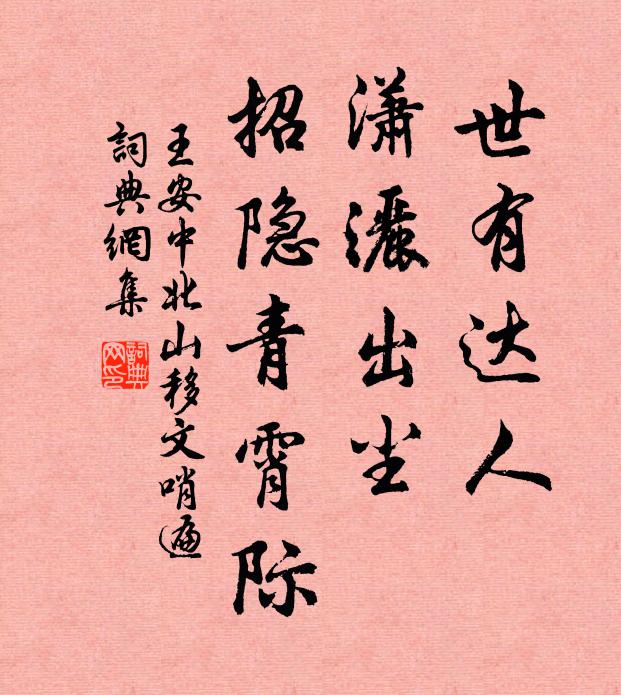 世有达人
潇灑出尘
招隐青霄际
王安中北山移文哨遍
詞典網集
詞典网印